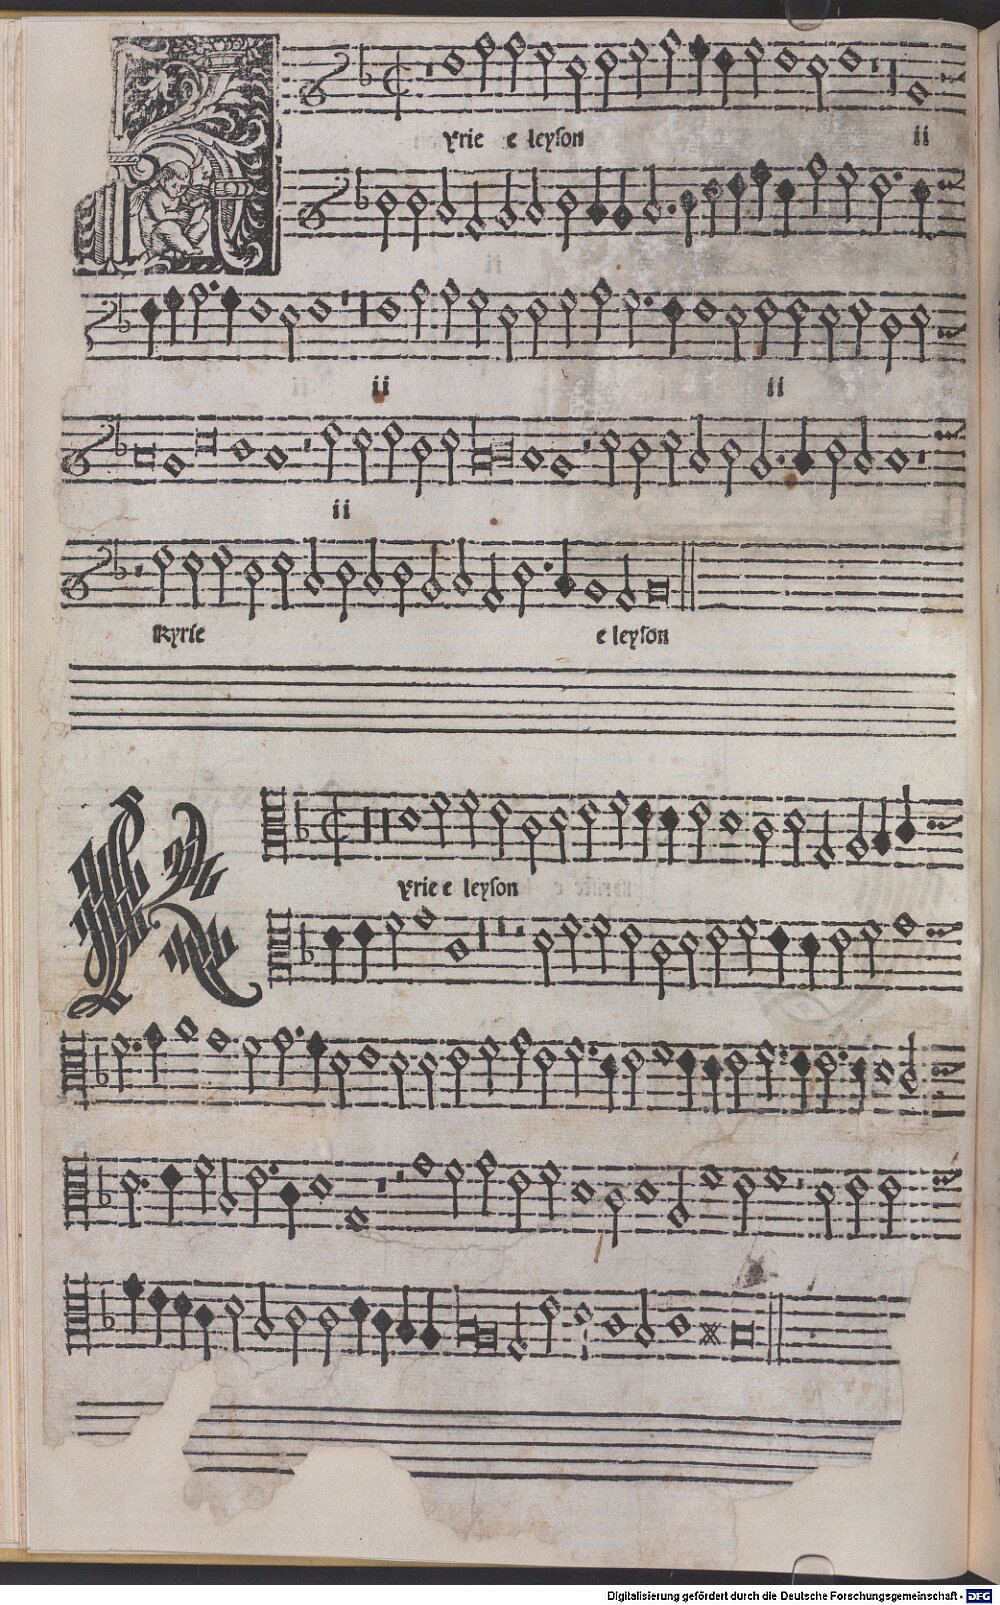 Yrie e leyſon ii
ii ii
ii
Kyrie e leyſon
K
Yrie e leyſon
Digitalisierung gefördert durch die Deutsche Forschungsgemeinschaft - DFG